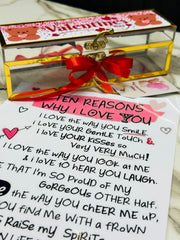 TEN REASONS
WHY I LOVE YOU
I LOVE THE WAY YOU SMILE
I LOVE YOUR GENTLE TOUCH &
I LOVE YOUR KISSES SO
VERY VERY MUCH!
I LOVE THE WAY YOU LOOK AT ME
& I LOVE TO HEAR YOU LAUGH
THAT I'M SO PROUD OF MY
GORGEOUS OTHER HALF.
THE WAY YOU CHEER ME UP,
YOU FIND ME WITH A FROWN
RAISE MY SPIRIT